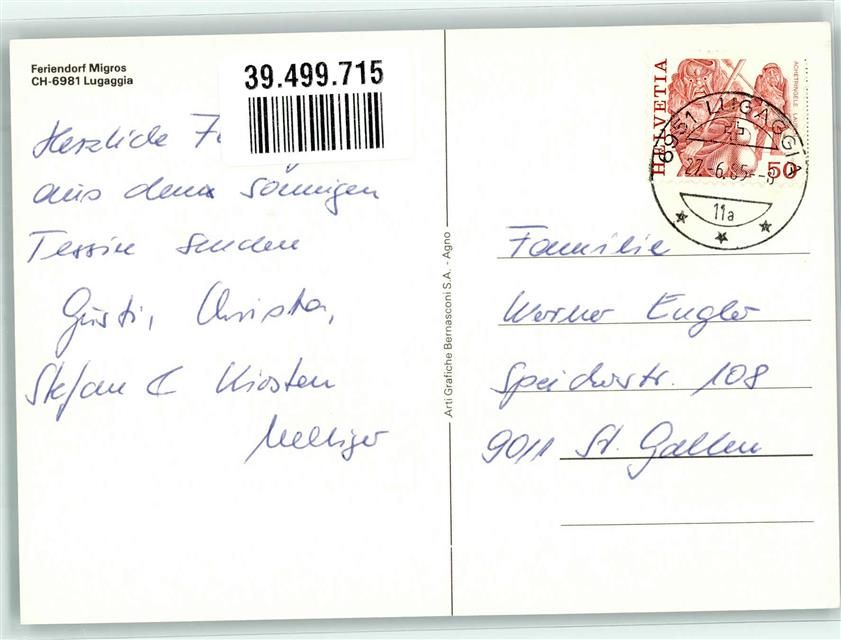 Feriendorf Migros
CH-6981 Lugaggia
39.499.715
Herzliche
aus dem sonnigen
Tessin senden
Gusti, Christa,
Stefan & Kirsten
Melliger
Arti Grafiche Bernasconi S.A. - Agno
HELVETIA
ACHETRINGELE
50
6951 LUGAGGIA
27.-6.85-8
11a
Familie
Werner Engler
Speicherstr. 108
9011 St. Gallen